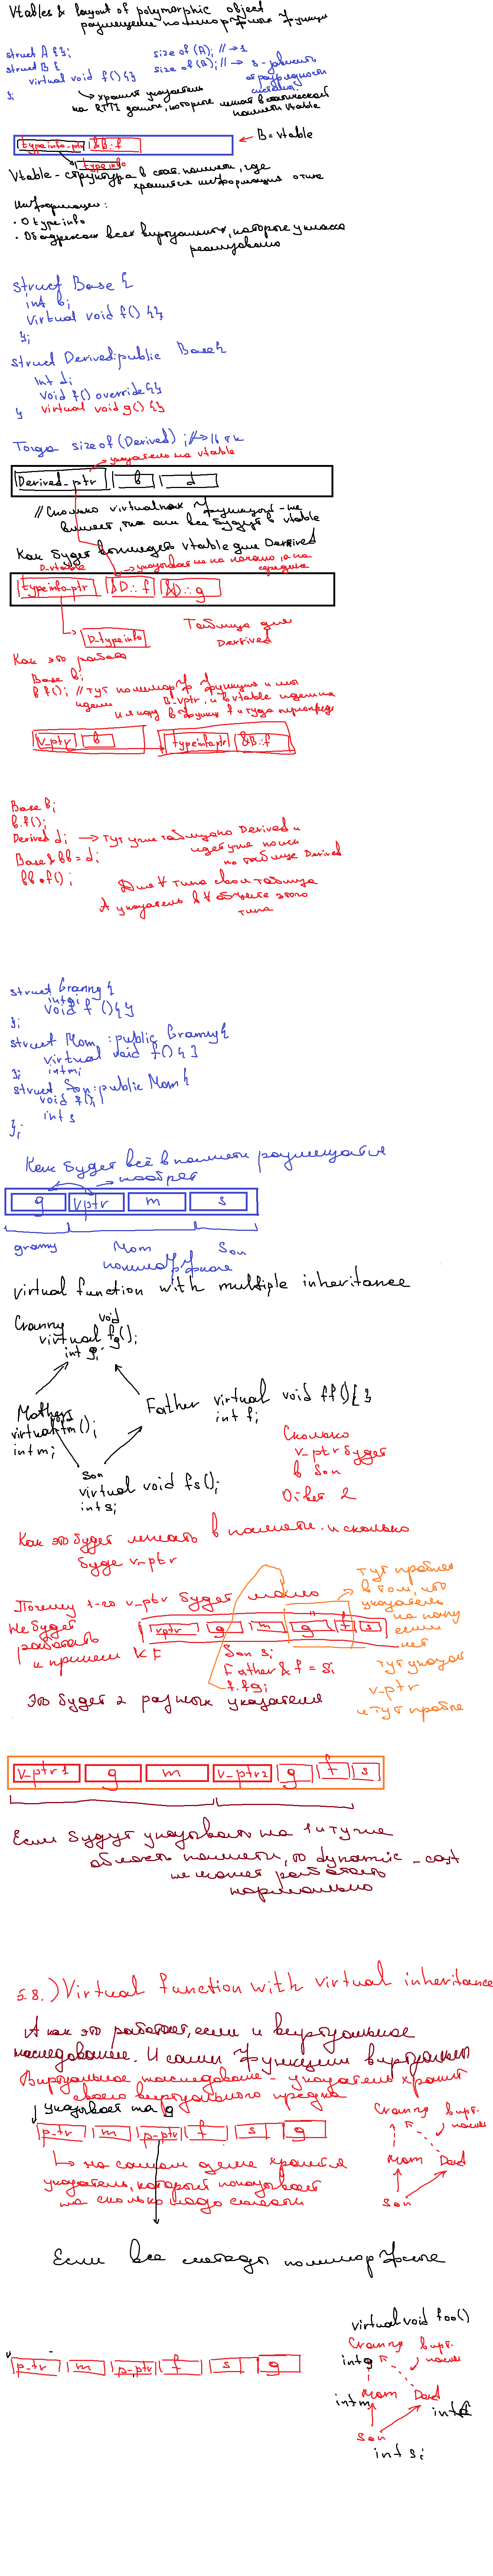 Vtables & layout of polymorphic object
размещение полиморфных функций
struct A { };
size of (A); // → 1
struct B {
size of (B); // → 8 - зависит от разрядности системы
virtual void f() { }
};
→ хранит указатель
на RTTI данные, которые лежат в статической памяти vtable
typeinfo-ptr &B::f
← B = vtable
typeinfo
Vtable - структура в стат. памяти, где
хранится информация о типе
Информации:
• О typeinfo
• Об адресах всех виртуальных, которые у класса
реализованы
struct Base {
int b;
virtual void f() { };
};
struct Derived: public Base {
int d;
void f() override { }
virtual void g() { }
}
Тогда size of (Derived); // → 16
указатель на vtable
Derived_ptr b d
// Сколько virtual функций не
пишем, то они все будут в vtable
Как будет выглядеть vtable для Derived
D-vtable
указывая не на начало, а на
середину
typeinfo ptr &D::f &D::g
D-typeinfo
Таблица для
Derived
Как это работает
Base b;
b.f(); // тут полиморф функция и мы
идем B_vptr, и в vtable идем на
v_ptr b typeinfo ptr &B::f
Base b;
b.f();
Derived d; → тут уже таблица Derived и
идет уже поиск
Base & bb = d;
по таблице Derived
bb.f();
Для ∀ типа своя таблица
А указатель в ∀ объекте этого
типа
struct Granny {
int g;
void f () { }
};
struct Mom : public Granny {
virtual void f() { }
int m;
};
struct Son: public Mom {
void f()
int s
};
Как будет всё в памяти размещаться
→ наоборот
g vptr m s
granny Mom Son
полиморфное
virtual function with multiple inheritance
Granny void
virtual fg();
int g;
Mother
virtual fm();
int m;
Father virtual void ff() { }
int f;
Son
virtual void fs();
int s;
Сколько
v_ptr будет
в Son
Ответ 2
Как это будет лежать в памяти и сколько
буде v_ptr
Почему 1-го v_ptr будет мало
Не будет
работать
vptr g m g f s
Son s;
Father & f = s;
f.fg;
тут проблема
в том, что
указатель
на
нет
тут указат
v_ptr
и тут пробле
Это будет 2 разных указателя
v_ptr1 g m v_ptr2 g f s
Если будут указывать на 1 и ту же
область памяти, то dynamic_cast
не может работать
нормально
5.8.) Virtual function with virtual inheritance
А как это работает, если и виртуальное
наследование. И сами функции виртуальн
Виртуальное наследование - указатель хранит
своего виртуального предка
указывает на g
p-tr m p-ptr f s g
↳ на самом деле хранится
указатель, который показывает
на сколько надо
Granny вирт.
Mom Dad
Son
Если все методы полиморфные
virtual void foo()
Granny вирт.
int g
p-tr m p-ptr f s g
int m Mom Dad
int f
Son
int s;